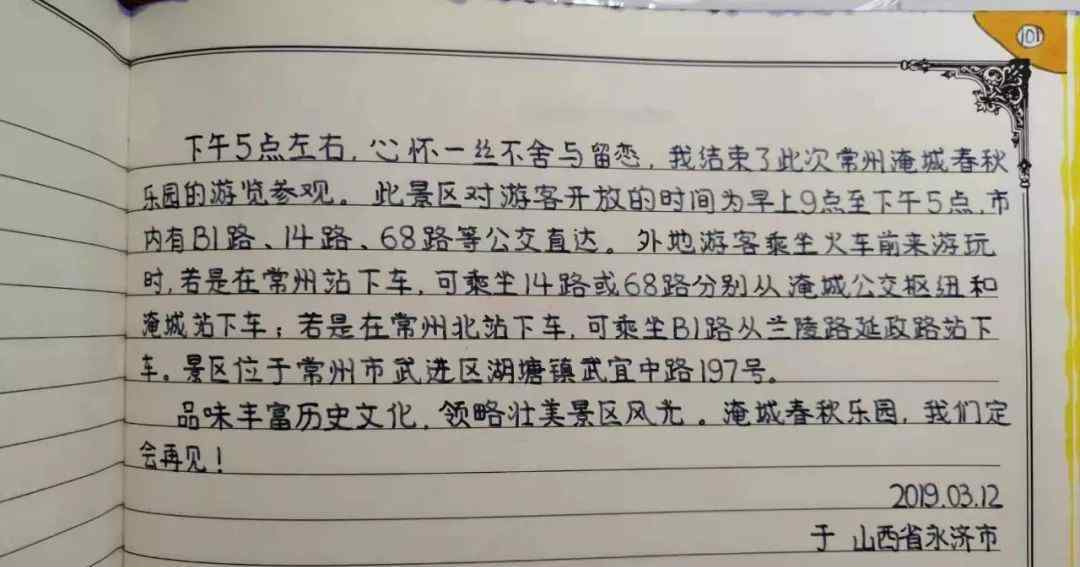 101
下午5点左右,心怀一丝不舍与留恋,我结束了此次常州淹城春秋
乐园的游览参观。此景区对游客开放的时间为早上9点至下午5点,市
内有B1路、14路、68路等公交直达。外地游客乘坐火车前来游玩
时,若是在常州站下车,可乘坐14路或68路分别从淹城公交枢纽和
淹城站下车;若是在常州北站下车,可乘坐B1路从兰陵路延政路站下
车。景区位于常州市武进区湖塘镇武宜中路197号。
品味丰富历史文化,领略壮美景区风光。淹城春秋乐园,我们定
会再见!
2019.03.12
于 山西省永济市